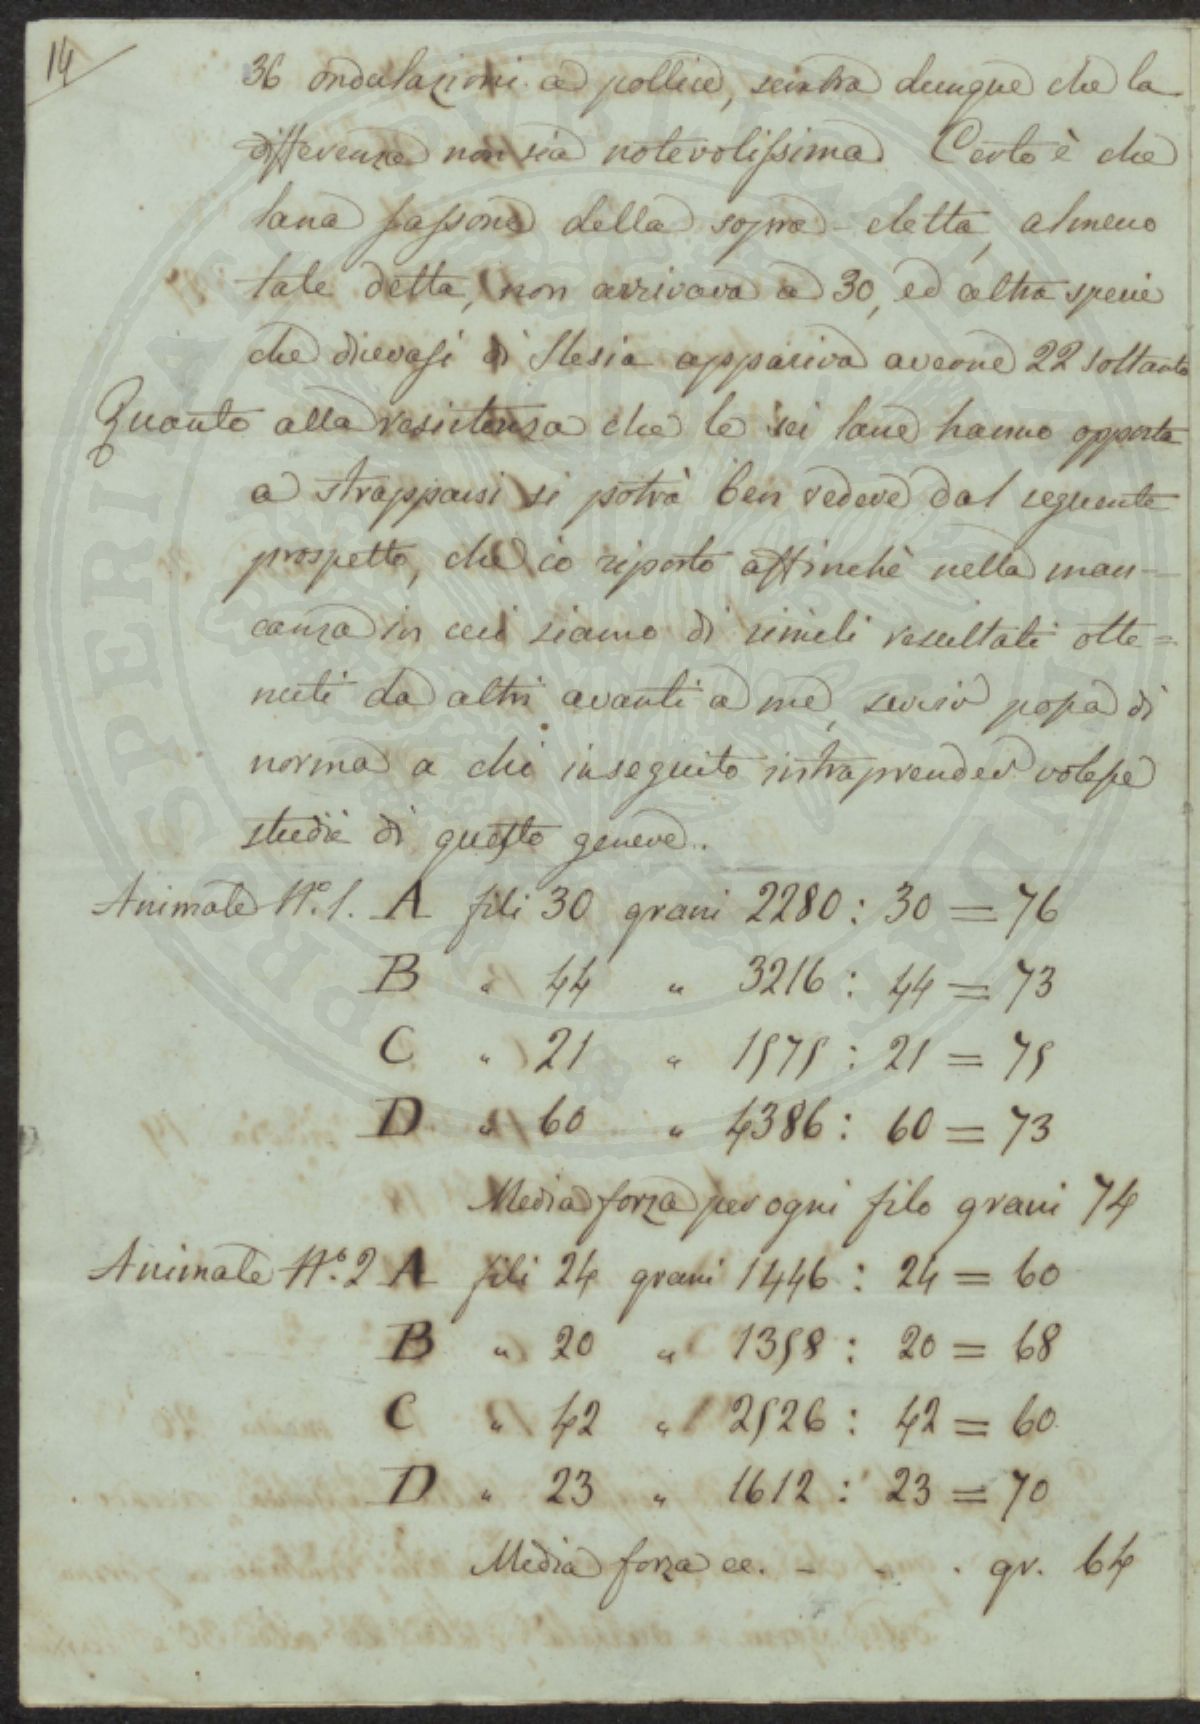 14
36 ondulazioni a pollice, sembra dunque che la
differenza non sia notevolissima. Certo è che
lana sassone della sopra-eletta, almeno
tale detta, non arrivava a 30, ed altra specie
che dicevasi di Slesia appariva averne 22 soltanto
Quanto alla resistenza che le sei lane hanno opposta
a strapparsi si potrà ben vedere dal seguente
prospetto, che io riporto affinchè nella man-
canza in cui siamo di simili resultati otte=
nuti da altri avanti a me, servir possa di
norma a chi inseguito intraprender volesse
studii di questo genere.
Animale N.º 1. A fili 30 grani 2280 : 30 = 76
B " 44 " 3216 : 44 = 73
C " 21 " 1575 : 21 = 75
D " 60 " 4386 : 60 = 73
Media forza per ogni filo grani 74
Animale N.º 2 A fili 24 grani 1446 : 24 = 60
B " 20 " 1358 : 20 = 68
C " 42 " 2526 : 42 = 60
D " 23 " 1612 : 23 = 70
Media forza ec. - - . gr. 64
PROSPERITATI PUBLICAE AUGENDAE